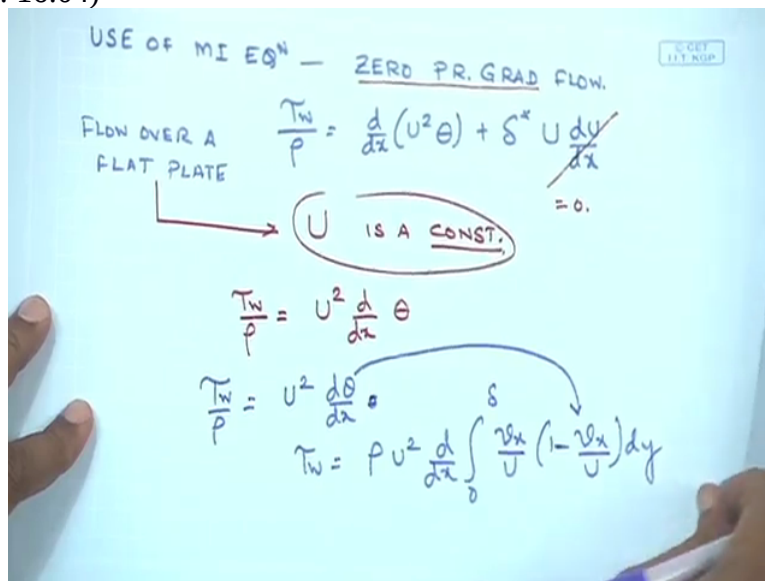 : 16:04)
USE OF MI EQᴺ — ZERO PR. GRAD FLOW.
© CET
I.I.T. KGP
FLOW OVER A
FLAT PLATE
τw/ρ = d/dx (U²θ) + δ* U dU/dx
= 0.
U IS A CONST.
τw/ρ = U² d/dx θ
τw/ρ = U² dθ/dx .
τw = ρU² d/dx ∫₀^δ vx/U (1 - vx/U) dy